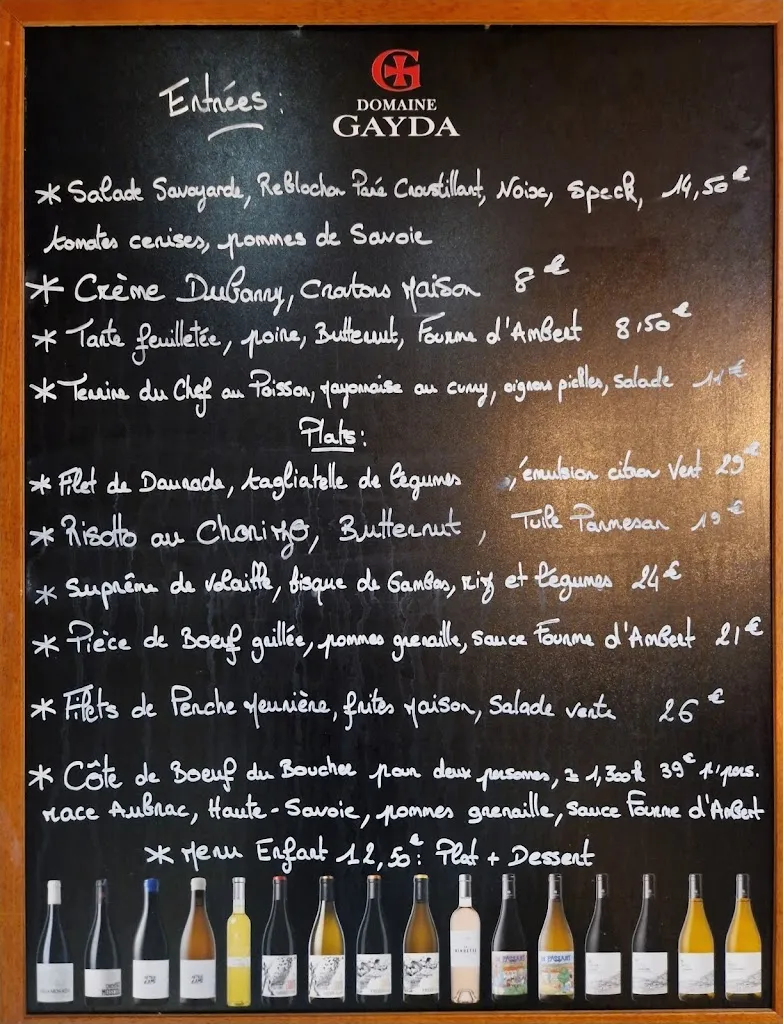 Entrées :
DOMAINE
GAYDA
* Salade Savoyarde, Reblochon Pané Croustillant, Noix, Speck, 14,50€
tomates cerises, pommes de Savoie
* Crème Dubarry, Croutons Maison 8€
* Tarte feuilletée, poire, Butternut, Fourme d'Ambert 8,50€
* Terrine du Chef au Poisson, mayonnaise au curry, oignons pickles, salade 11€
Plats :
* Filet de Daurade, tagliatelle de légumes, émulsion citron Vert 23€
* Risotto au Chorizo, Butternut, Tuile Parmesan 19€
* Suprême de volaille, bisque de Gambas, riz et légumes 24€
* Pièce de Boeuf grillée, pommes grenaille, sauce Fourme d'Ambert 21€
* Filets de Perche Meunière, frites Maison, Salade verte 26€
* Côte de Boeuf du Boucher pour deux personnes, ± 1,300k 39€ p/pers.
race Aubrac, Haute-Savoie, pommes grenaille, sauce Fourme d'Ambert
* Menu Enfant 12,50€ : Plat + Dessert